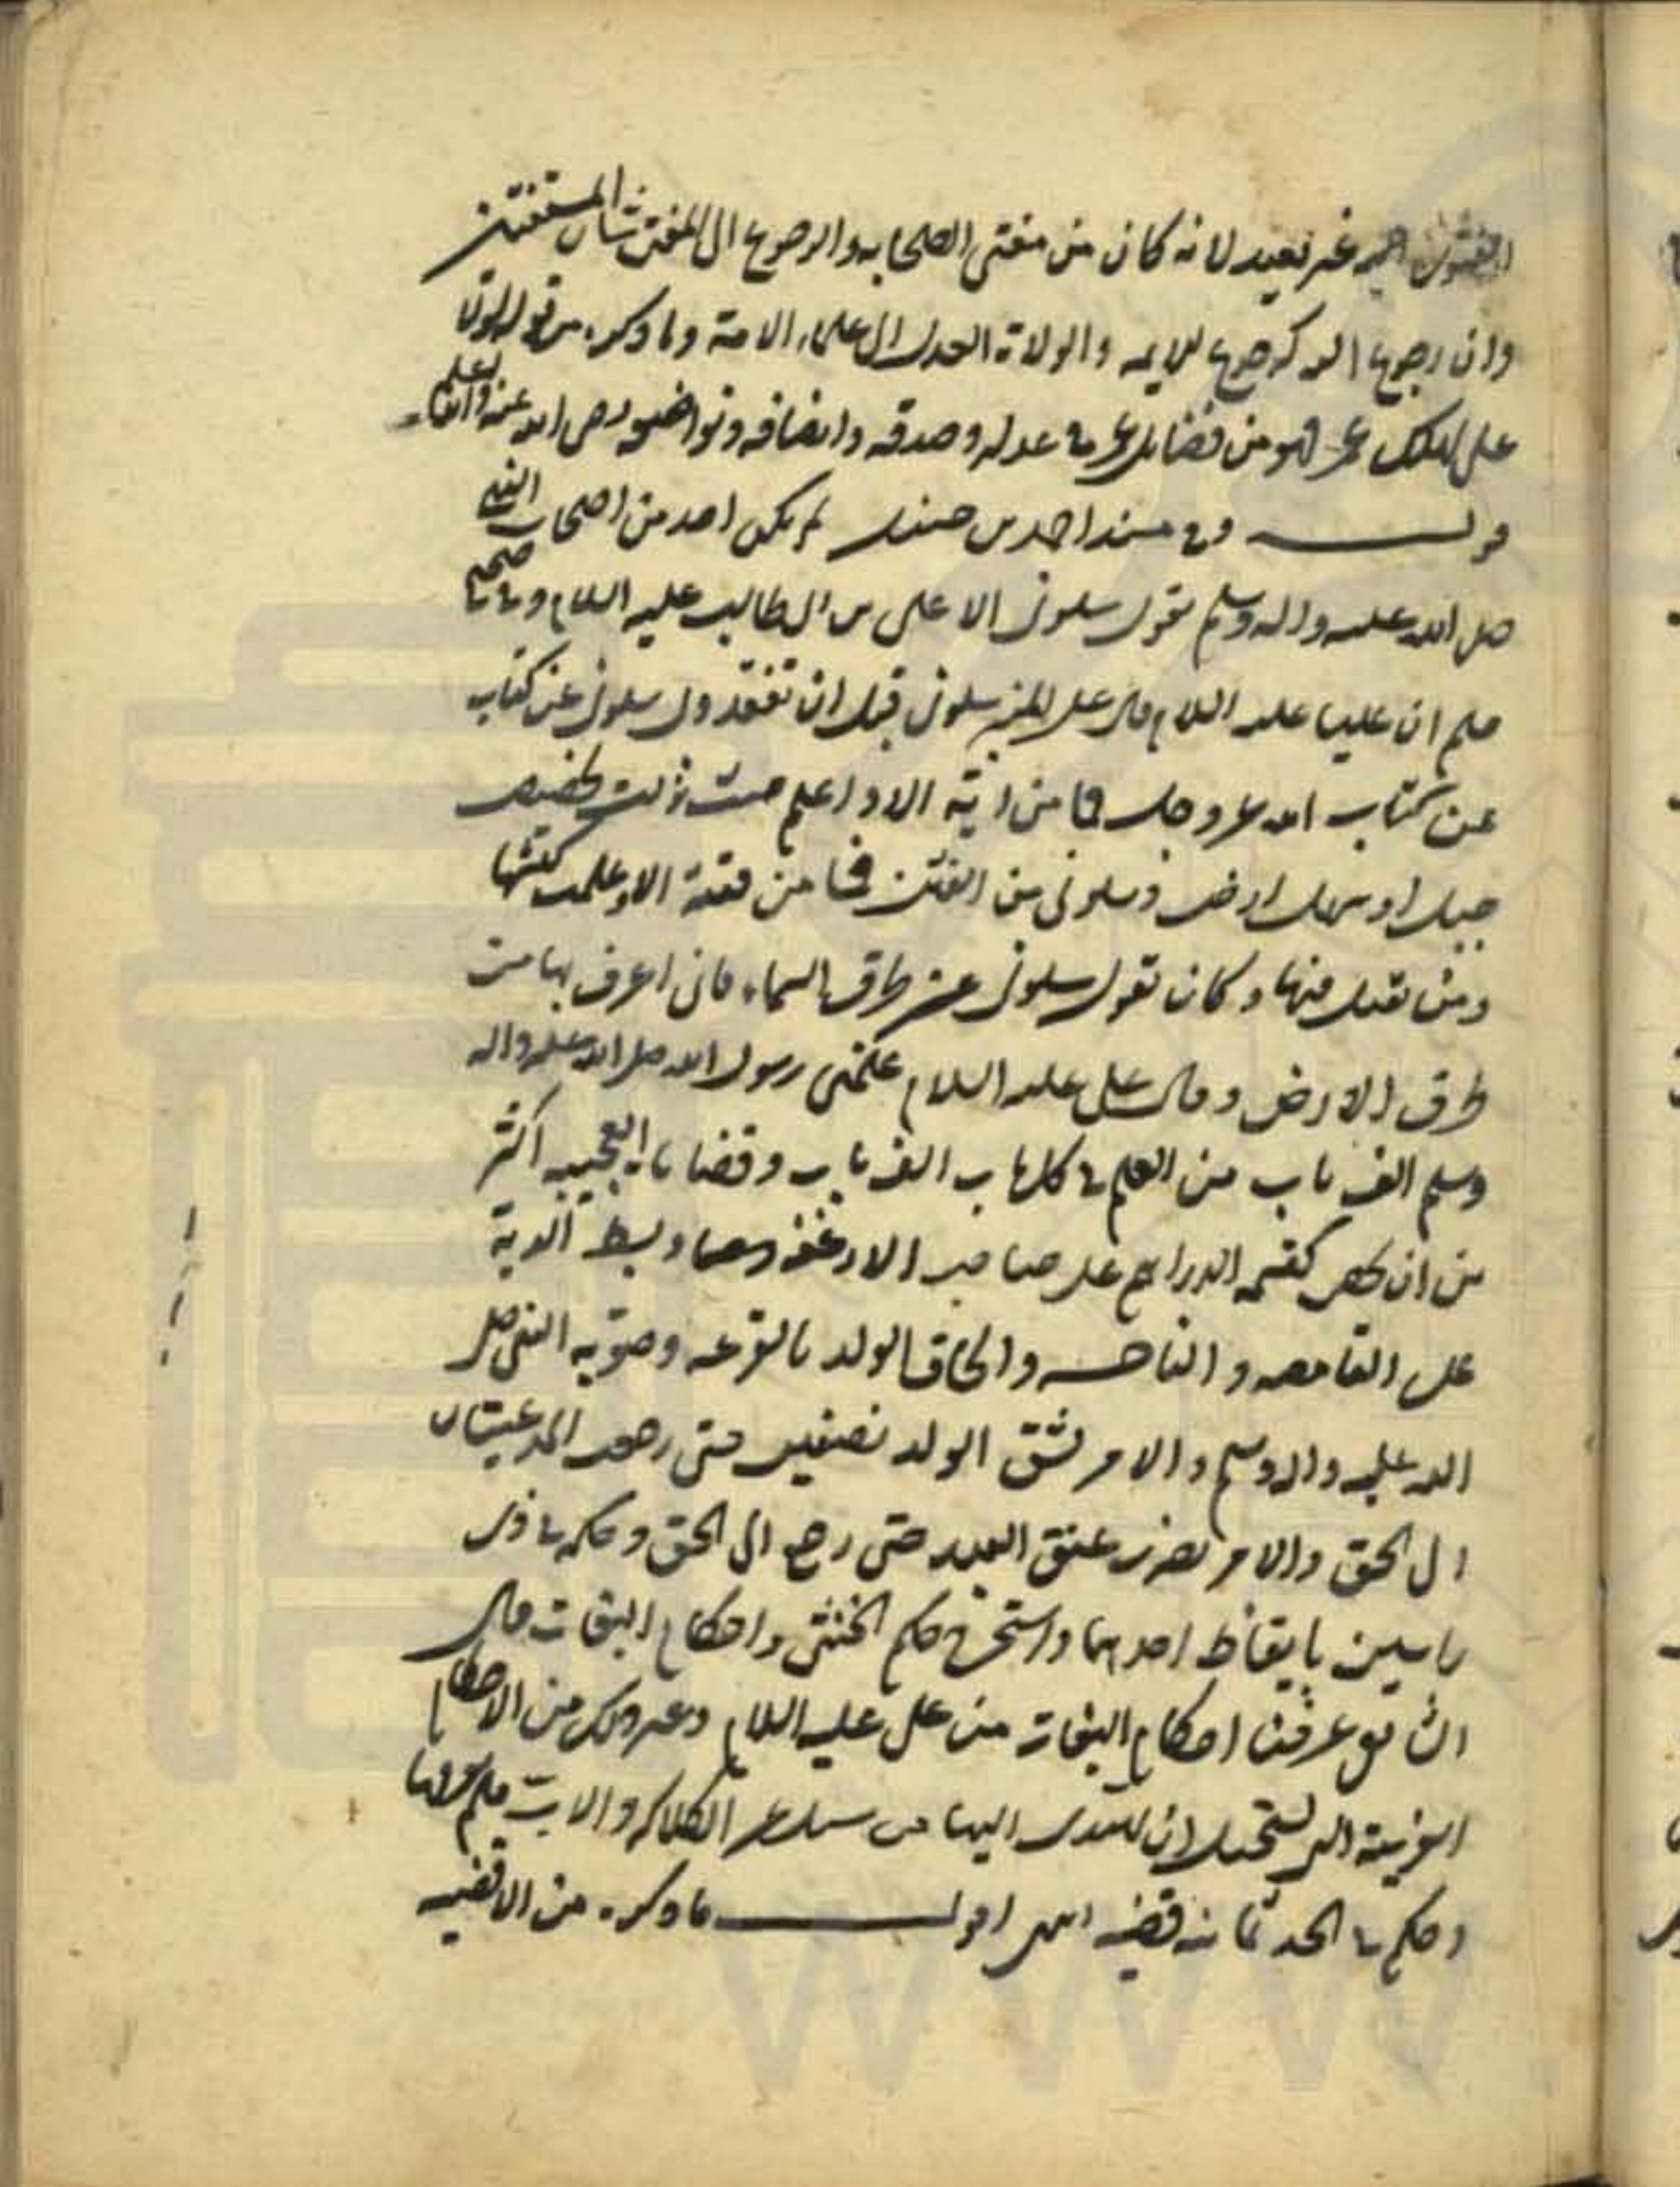 غير بعيد لانه كان من مفتى الصحابه والرجوع الى المفتى شان المستفتين
وان رجوع عمر اليه كرجوع الايمه والولاة العدل الى علماء الامة وما ذكره من قوله لولا
على لهلك عمر فهو من فضايل عمر فى عدله وصدقه وانصافه وتواضعه رضى الله عنه
قولــه وفى مسند احمد بن حنبل لم يكن احد من اصحاب النبى
صلى الله عليه واله وسلم يقول سلونى الا على بن ابى طالب عليه السلام وفى صحيح
مسلم ان عليا عليه السلام قال على المنبر سلونى قبل ان تفقدونى سلونى عن كتاب
عن كتاب الله عز وجل فما من اية الا واعلم حيث نزلت بحضيض
جبل او سهل ارض وسلونى عن الفتن فما من فتنة الا وعلمت كبشها
ومن يقتل فيها وكان يقول سلونى عن طرق السماء فانى اعرف بها من
طرق الارض وقال على عليه السلام علمنى رسول الله صلى الله عليه واله
وسلم الف باب من العلم فى كل باب الف باب وقضاياه العجيبه اكثر
من ان تحصى كقسمه الدراهم على صاحب الارغفه وبسط الدية
على القامصه والناخسه والحاق الولد بالقرعه وصوبه النبى صلى
الله عليه واله وسلم والامر بشق الولد نصفين حتى رجعت المدعيتان
الى الحق والامر بضرب عنق العبد حتى رجع الى الحق وحكمه فى ذى
راسين بايقاظ احدهما واستخرج حكم الخنثى واحكام البغات قال
الشافعى عرفنا احكام البغات من على عليه السلام وغير ذلك من الاحكام
الغريبة التى يستحيل ان يهتدى اليها من سئل عن الكلاله والاب فلم يعرفها
وحكم فى الجد ثمانه قضيه انتهى اقولــ ما ذكره من الاقضيه